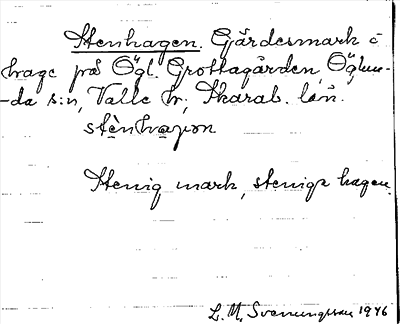 Stenhagen. Gärdesmark o
hage på Ögl. Grottagården, Öglun-
-da s:n, Valle hr, Skarab. län.
stènhaγən
Stenig mark, steniga hagen.
L. M. Svenungsson 1946